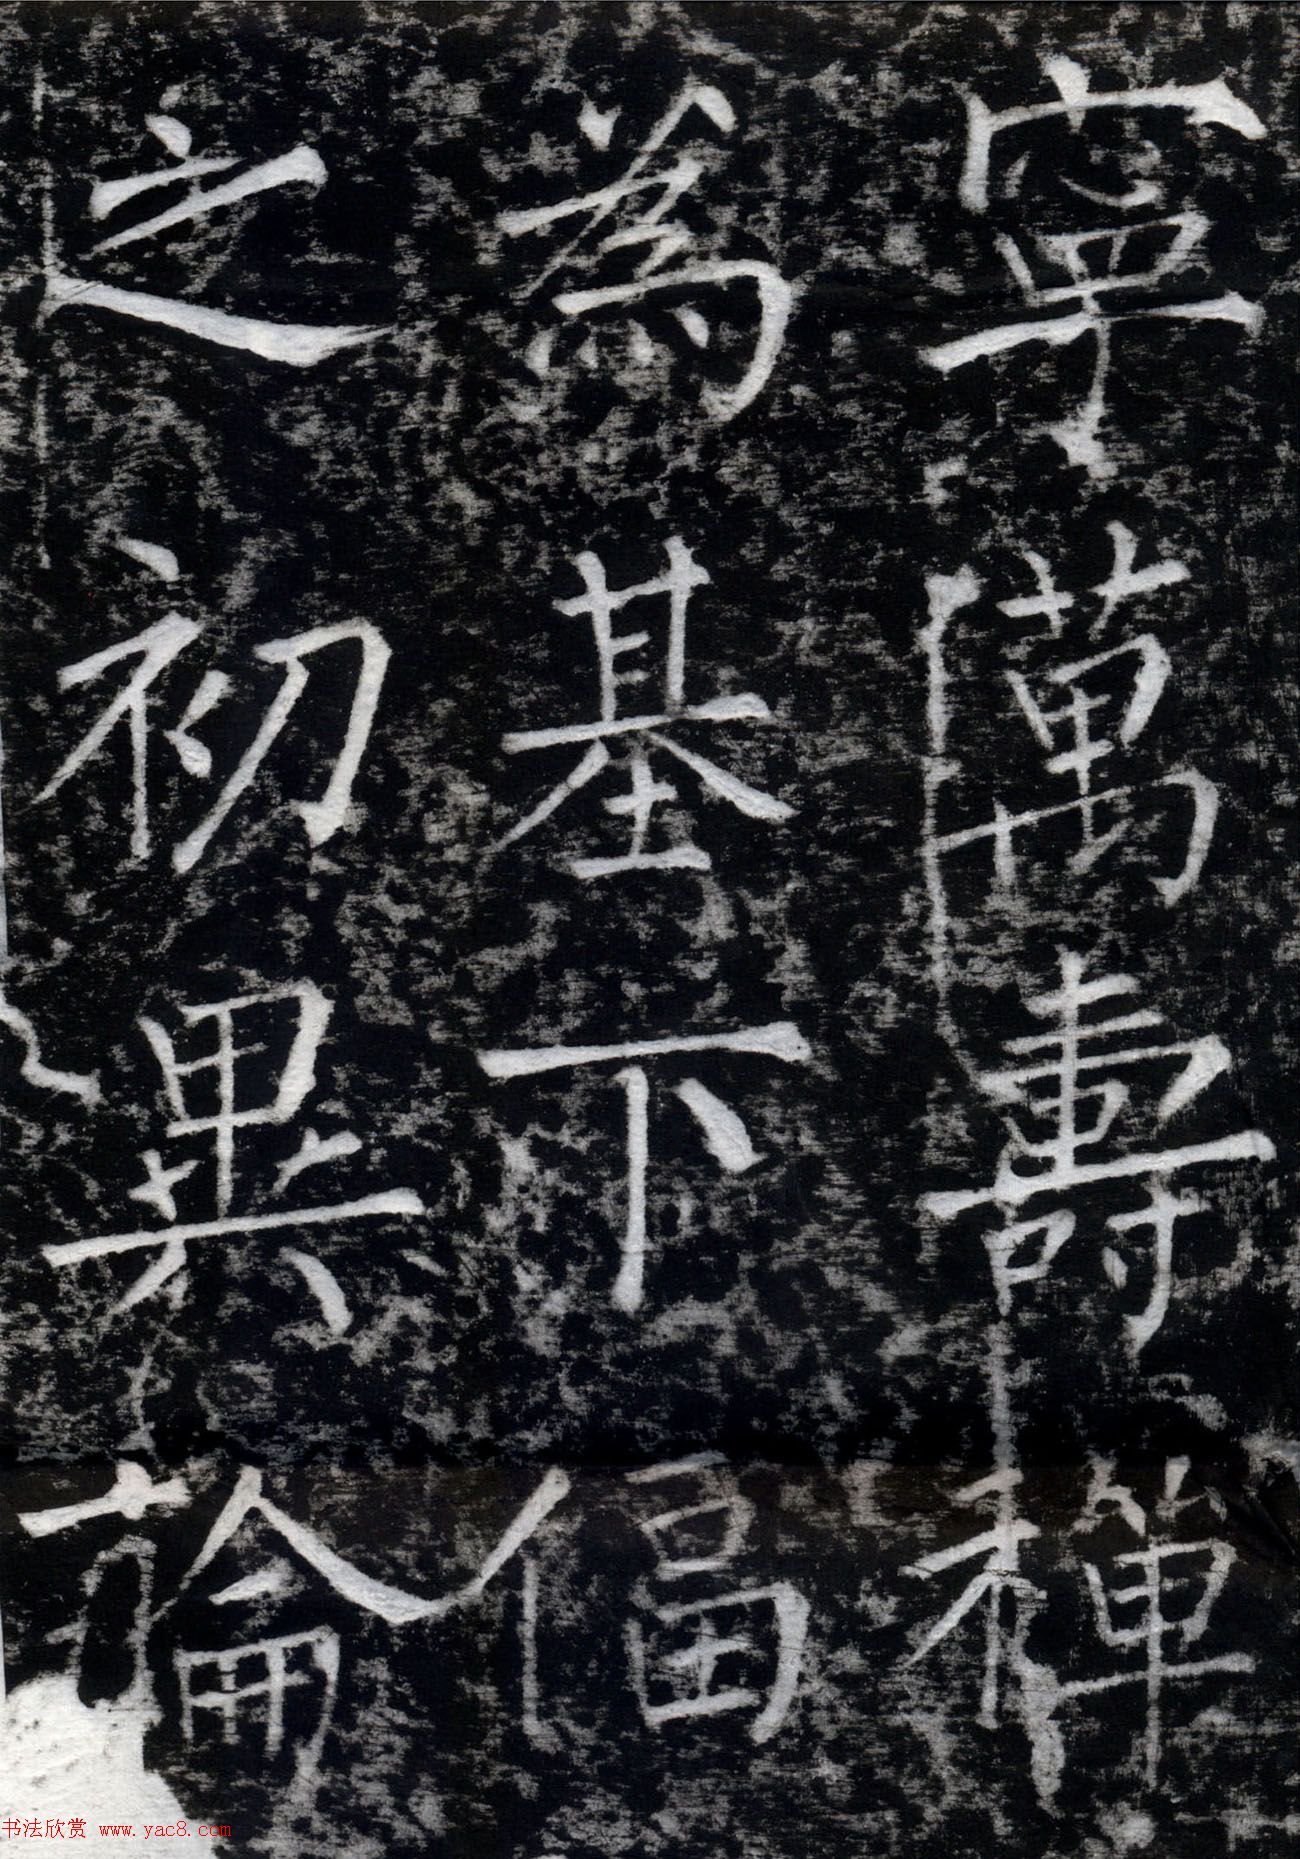 寧萬壽禅
為基下偪
之初異論
书法欣赏 www.yac8.com